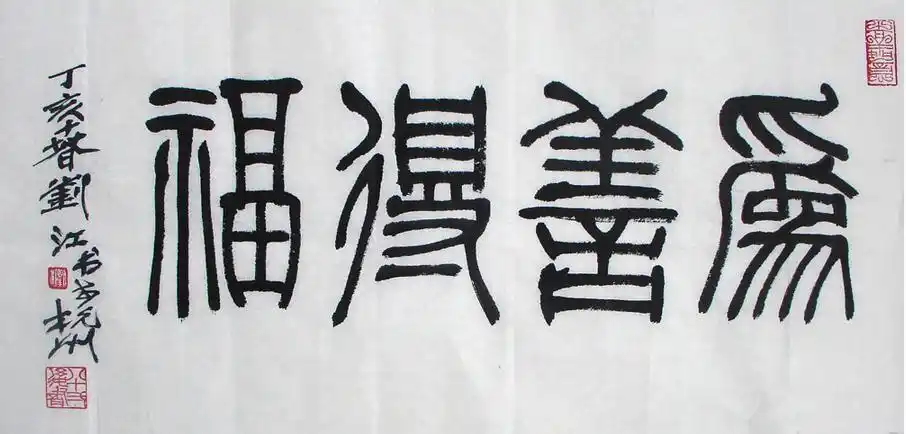 為善得福
丁亥春劉江书于杭州